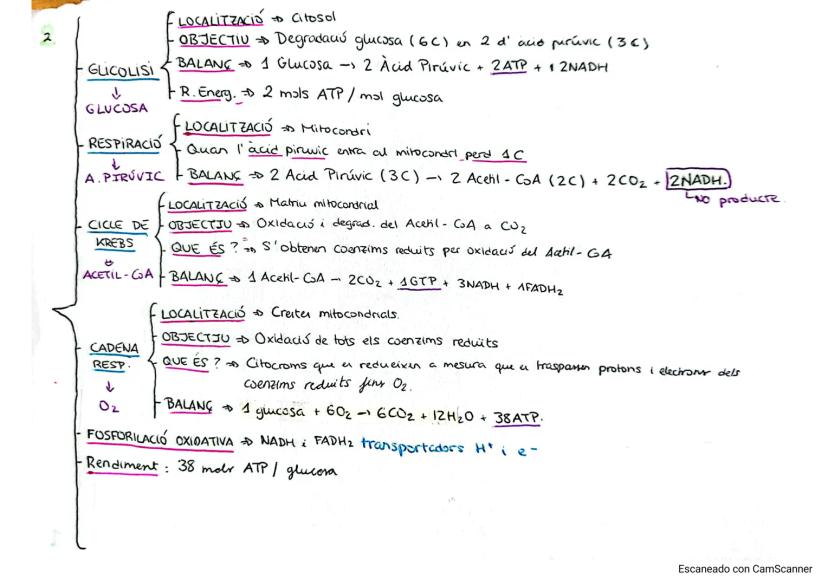 2
GLICOLISI
↓
GLUCOSA
LOCALITZACIÓ ⇒ Citosol
OBJECTIU ⇒ Degradació glucosa (6C) en 2 d'àcid pirúvic (3C)
BALANÇ ⇒ 1 Glucosa → 2 Àcid Pirúvic + 2ATP + 2NADH
R. Energ. ⇒ 2 mols ATP / mol glucosa
RESPIRACIÓ
↓
A. PIRÚVIC
LOCALITZACIÓ ⇒ Mitocondri
Quan l'àcid piruvic entra al mitocondri perd 1C
BALANÇ ⇒ 2 Acid Pirúvic (3C) → 2 Acetil-CoA (2C) + 2CO₂ + 2NADH.
NO producte.
CICLE DE
KREBS
⇓
ACETIL-CoA
LOCALITZACIÓ ⇒ Matriu mitocondrial
OBJECTIU ⇒ Oxidació i degrad. del Acetil-CoA a CO₂
QUE ÉS? ⇒ S'obtenen coenzims reduits per oxidació del Acetil-CoA
BALANÇ ⇒ 1 Acetil-CoA → 2CO₂ + 1GTP + 3NADH + 1FADH₂
CADENA
RESP.
↓
O₂
LOCALITZACIÓ ⇒ Crestes mitocondrials.
OBJECTIU ⇒ Oxidació de tots els coenzims reduits
QUE ÉS? ⇒ Citocroms que es redueixen a mesura que es traspassen protons i electrons dels
coenzims reduits fins O₂.
BALANÇ ⇒ 1 glucosa + 6O₂ → 6CO₂ + 12H₂O + 38ATP.
FOSFORILACIÓ OXIDATIVA ⇒ NADH i FADH₂ transportadors H⁺ i e⁻
Rendiment: 38 mols ATP / glucosa
Escaneado con CamScanner